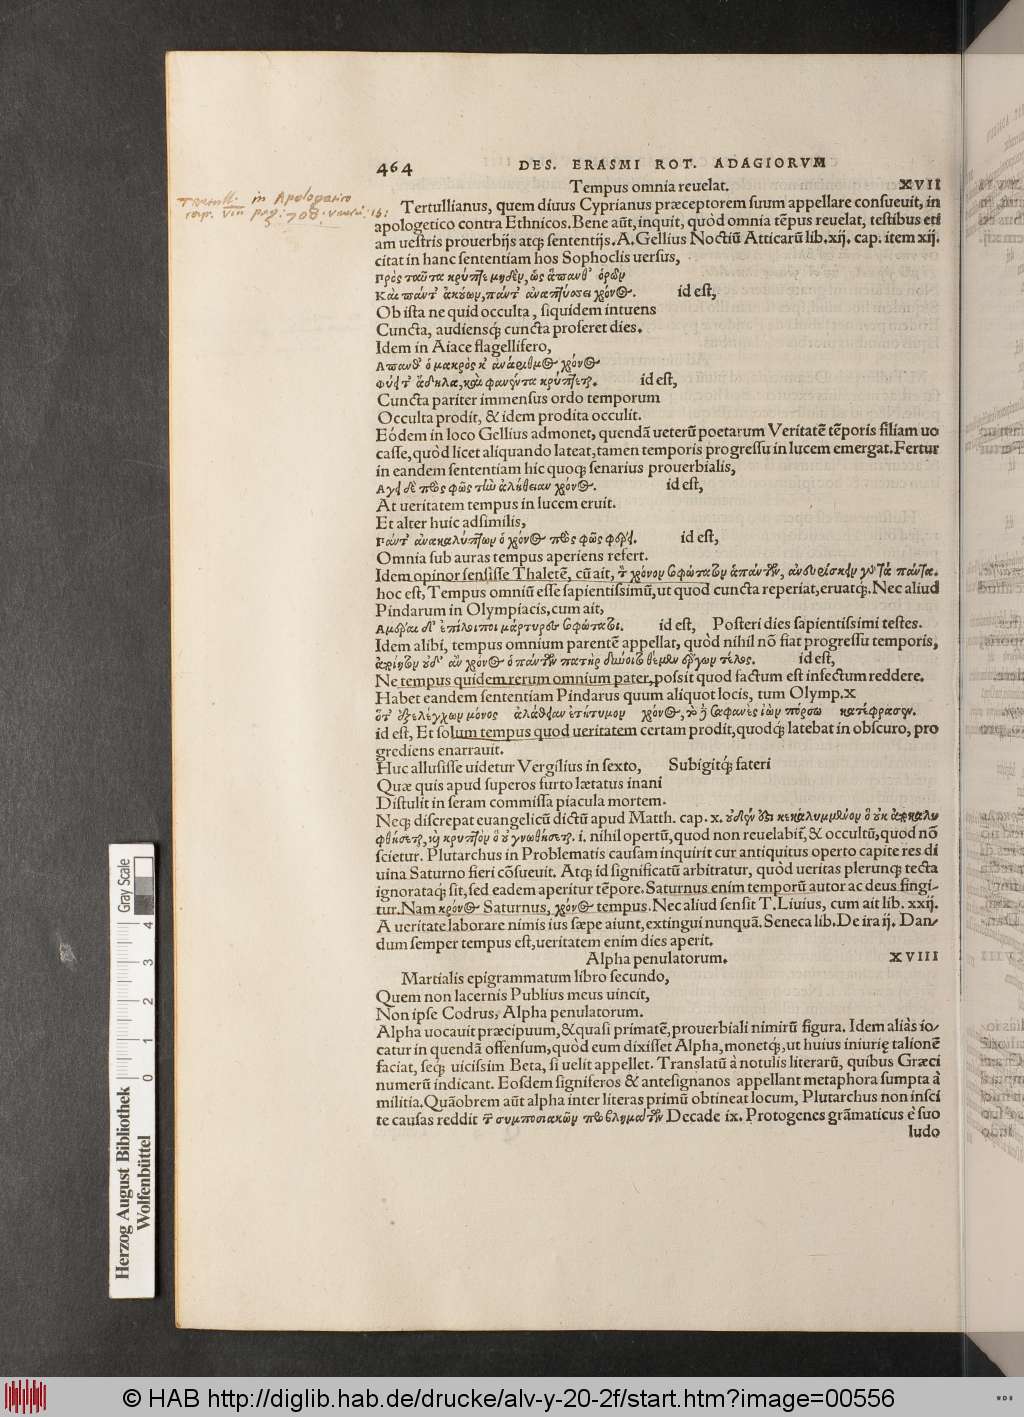 464 DES. ERASMI ROT. ADAGIORVM
Tempus omnia reuelat. XVII
Tertull. in Apologetico
Tertullianus, quem diuus Cyprianus præceptorem suum appellare consueuit, in
apologetico contra Ethnicos. Bene aūt, inquit, quòd omnia tēpus reuelat, testibus eti
am uestris prouerbijs atq; sententijs. A. Gellius Noctiū Atticarū lib. xij. cap. item xij.
citat in hanc sententiam hos Sophoclis uersus,
Πρὸς ταῦτα κρύπτε μηδὲν, ὡς ἅπανθ' ὁρῶν
Καὶ πάντ' ἀκούων, πάντ' ἀναπτύσσει χρόνος. id est,
Ob ista ne quid occulta, siquidem intuens
Cuncta, audiensq; cuncta proferet dies.
Idem in Aiace flagellifero,
Απανθ' ὁ μακρὸς κ' ἀνάριθμος χρόνος
φύει τ' ἄδηλα, καὶ φανέντα κρύπτεται. id est,
Cuncta pariter immensus ordo temporum
Occulta prodit, & idem prodita occulit.
Eódem in loco Gellius admonet, quendā ueterū poetarum Veritatē tēporis filiam uo
casse, quòd licet aliquando lateat, tamen temporis progressu in lucem emergat. Fertur
in eandem sententiam hic quoq; senarius prouerbialis,
Αγει δὲ πρὸς φῶς τὴν ἀλήθειαν χρόνος. id est,
At ueritatem tempus in lucem eruit.
Et alter huic adsimilis,
Πάντ' ἀνακαλύπτων ὁ χρόνος πρὸς φῶς φέρει. id est,
Omnia sub auras tempus aperiens refert.
Idem opinor sensisse Thaletē, cū ait, τὸν χρόνον σοφώτατον ἁπάντων, ἀνευρίσκειν γὰρ τὰ πάντα.
hoc est, Tempus omniū esse sapientissimū, ut quod cuncta reperiat, eruatq;. Nec aliud
Pindarum in Olympiacis, cum ait,
Αμέραι δ' ἐπίλοιποι μάρτυρες σοφώταται. id est, Posteri dies sapientissimi testes.
Idem alibi, tempus omnium parentē appellat, quòd nihil nō fiat progressu temporis,
οὐδ' ἂν χρόνος ὁ πάντων πατὴρ δύναιτο θέμεν ἔργων τέλος. id est,
Ne tempus quidem rerum omnium pater, possit quod factum est infectum reddere.
Habet eandem sententiam Pindarus quum aliquot locis, tum Olymp. X
ὅτ' ἐξελέγχων μόνος ἀλάθειαν ἐτήτυμον χρόνος, τὸ δὲ σαφανὲς ἰὼν πόρσω κατέφρασεν.
id est, Et solum tempus quod ueritatem certam prodit, quodq; latebat in obscuro, pro
grediens enarrauit.
Huc allusisse uidetur Vergilius in sexto, Subigitq; fateri
Quæ quis apud superos furto lætatus inani
Distulit in seram commissa piacula mortem.
Neq; discrepat euangelicū dictū apud Matth. cap. x. οὐδὲν ἐστι κεκαλυμμένον ὃ οὐκ ἀποκαλυ
φθήσεται, καὶ κρυπτὸν ὃ οὐ γνωθήσεται. i. nihil opertū, quod non reuelabiī, & occultū, quod nō
scietur. Plutarchus in Problematis causam inquirit cur antiquitus operto capite res di
uina Saturno fieri cōsueuit. Atq; id significatū arbitratur, quòd ueritas plerunq; tecta
ignorataq; sit, sed eadem aperitur tēpore. Saturnus enim temporū autor ac deus fingi-
tur. Nam κρόνος Saturnus, χρόνος tempus. Nec aliud sensit T. Liuius, cum ait lib. xxij.
A ueritate laborare nimis ius sæpe aiunt, extingui nunquā. Seneca lib. De ira ij. Dan-
dum semper tempus est, ueritatem enim dies aperit.
Alpha penulatorum. XVIII
Martialis epigrammatum libro secundo,
Quem non lacernis Publius meus uincit,
Non ipse Codrus, Alpha penulatorum.
Alpha uocauit præcipuum, & quasi primatē, prouerbiali nimirū figura. Idem aliàs io-
catur in quendā offensum, quòd eum dixisset Alpha, monetq;, ut huius iniurię talionē
faciat, seq; uicissim Beta, si uelit appellet. Translatū à notulis literarū, quibus Græci
numerū indicant. Eosdem signiferos & antesignanos appellant metaphora sumpta à
militia. Quāobrem aūt alpha inter literas primū obtineat locum, Plutarchus non insci
te causas reddit τῶν συμποσιακῶν προβλημάτων Decade ix. Protogenes grāmaticus è suo
ludo
Herzog August Bibliothek
Wolfenbüttel
0 1 2 3 4
Gray Scale
© HAB http://diglib.hab.de/drucke/alv-y-20-2f/start.htm?image=00556